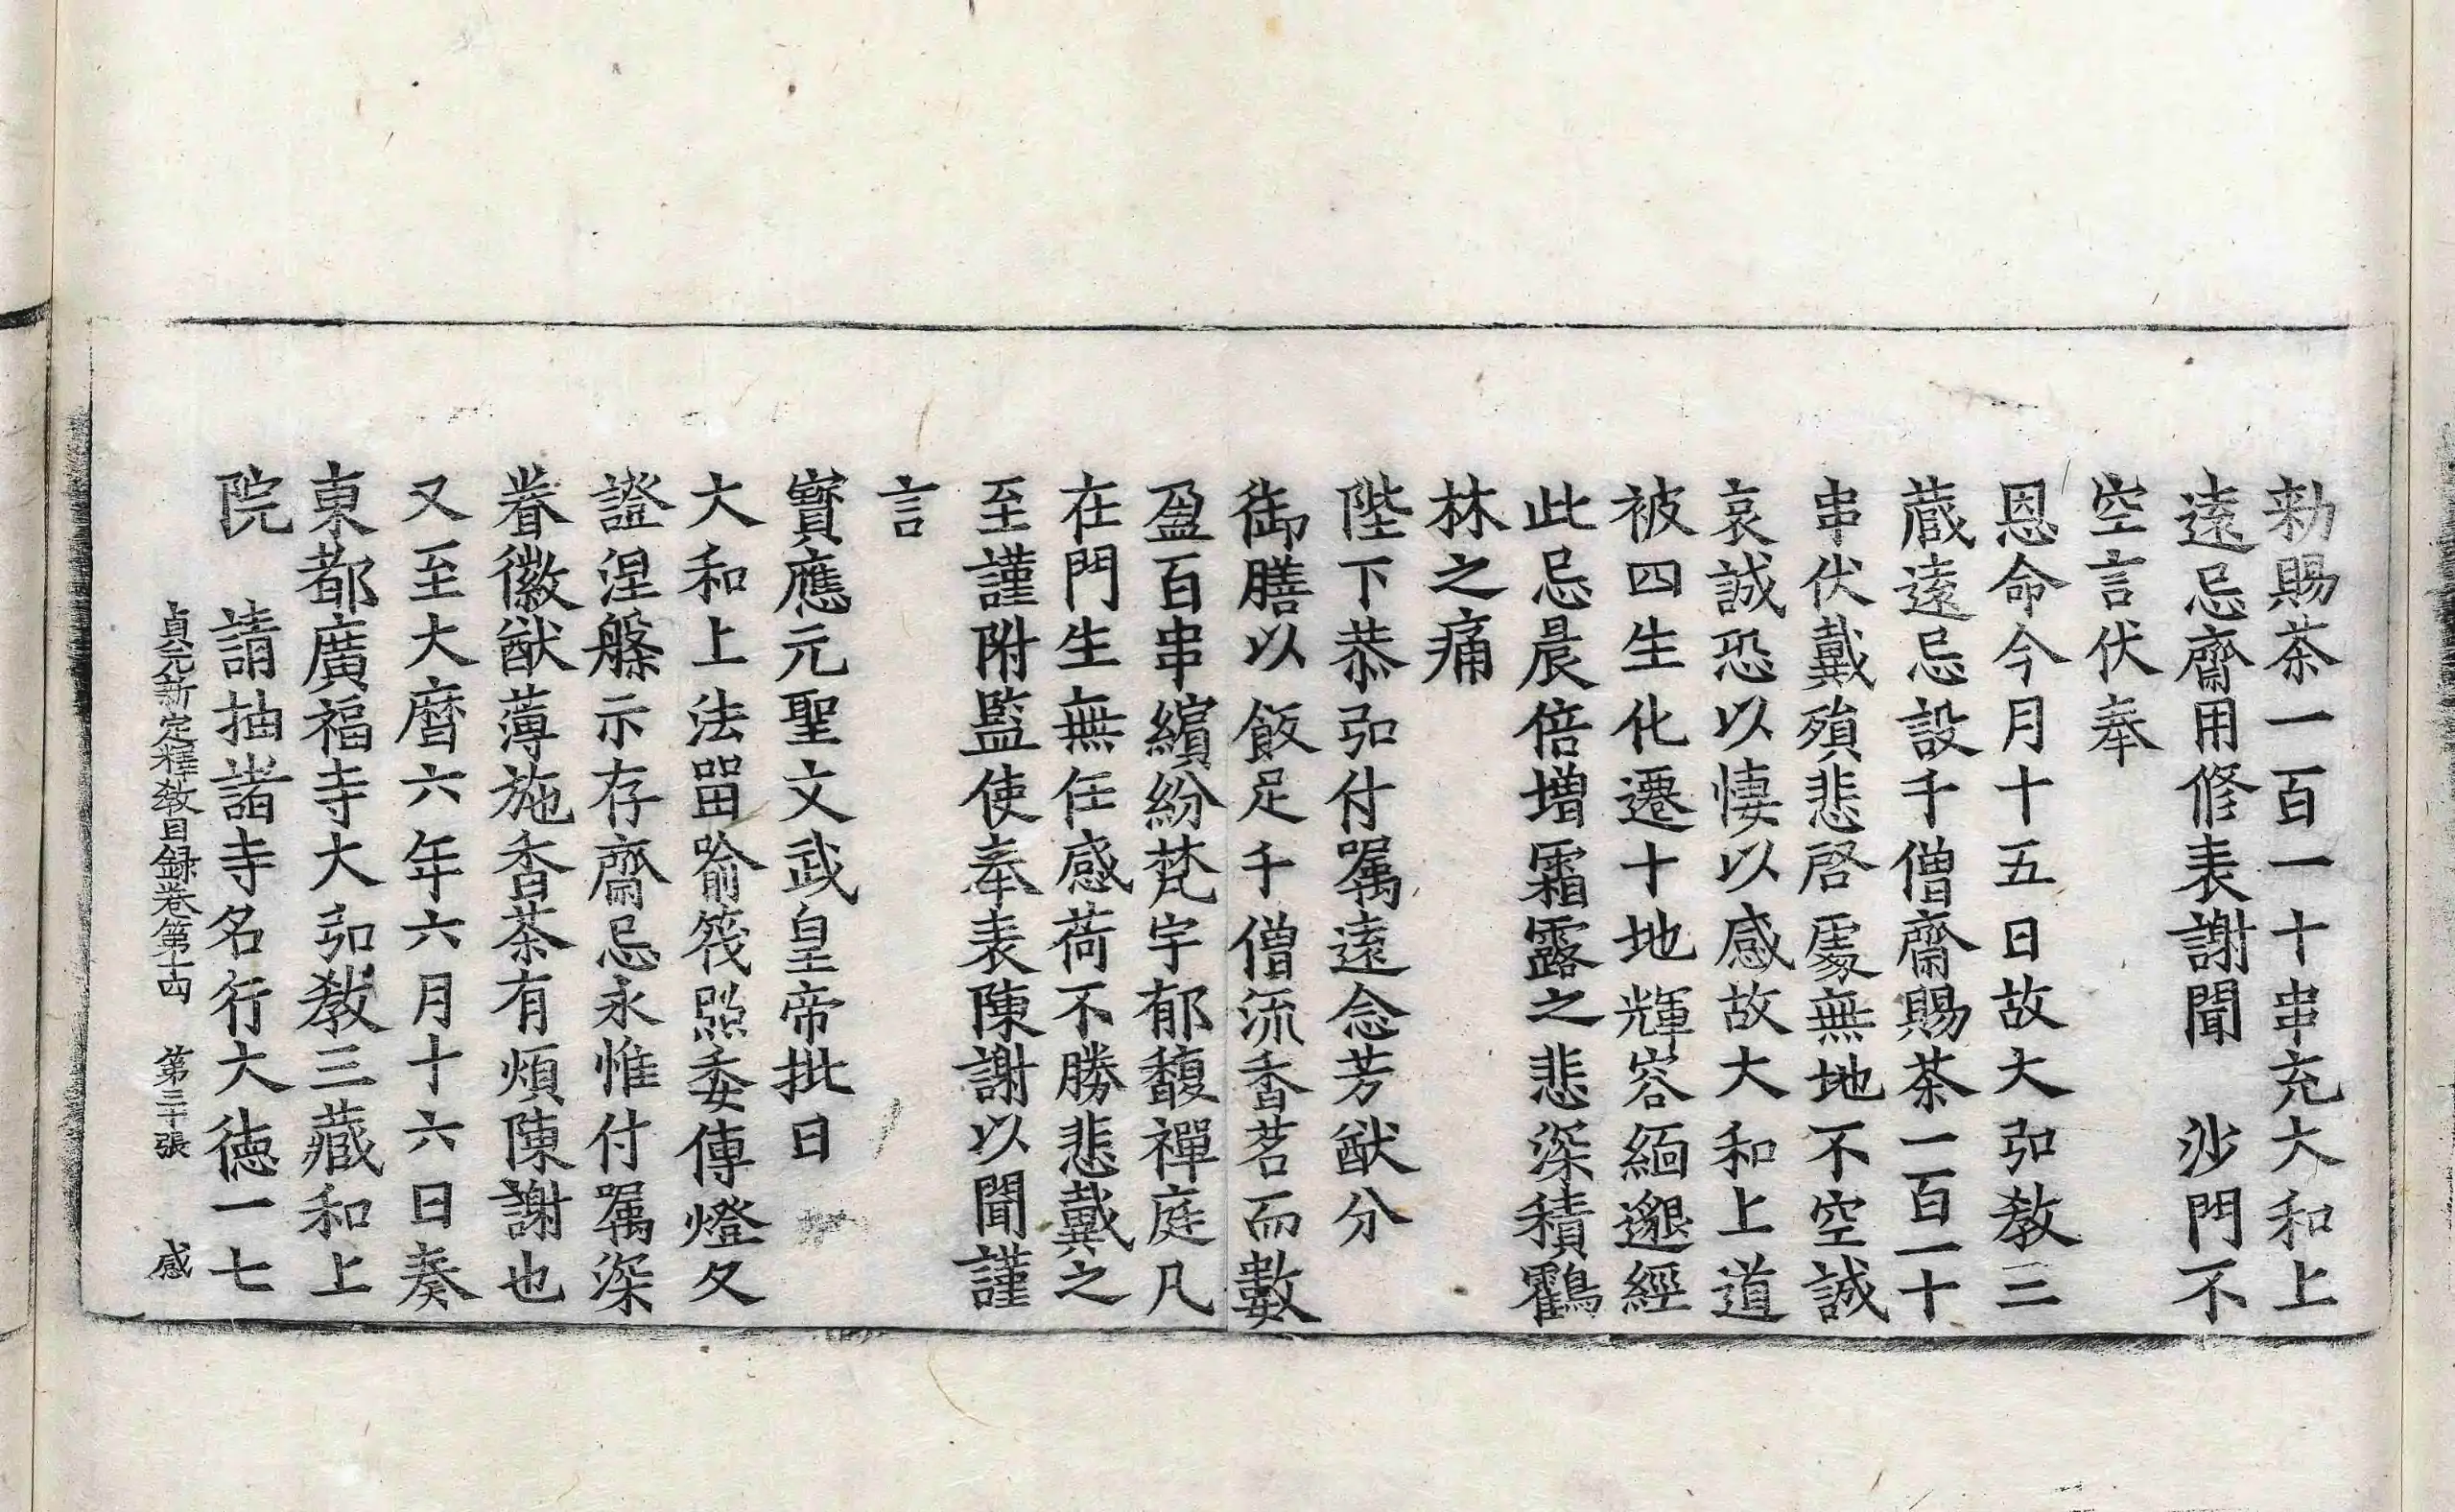 勑賜茶一百一十串充大和上
遠忌齋用修表謝聞　沙門不
空言伏奉
恩命今月十五日故大弘教三
蔵遠忌設千僧齋賜茶一百一十
串伏戴殞悲啓處無地不空誠
哀誠恐以悽以感故大和上道
被四生化遷十地輝容緬邈經
此忌晨倍増霜露之悲深積鸖
林之痛
陛下恭弘付嘱遠念芳猷分
御膳以飯足千僧流香茗而數
盈百串繽紛梵宇郁馥禪庭凡
在門生無任感荷不勝悲戴之
至謹附監使奉表陳謝以聞謹
言
寳應元聖文武皇帝批曰
大和上法留喻筏照委傳燈久
證涅槃示存齋忌永惟付嘱深
眷徽猷薄施香茶有煩陳謝也
又至大暦六年六月十六日奏
東都廣福寺大弘教三藏和上
院　請抽諸寺名行大徳一七
貞元新定釋教目録卷第十四　第三十張　感